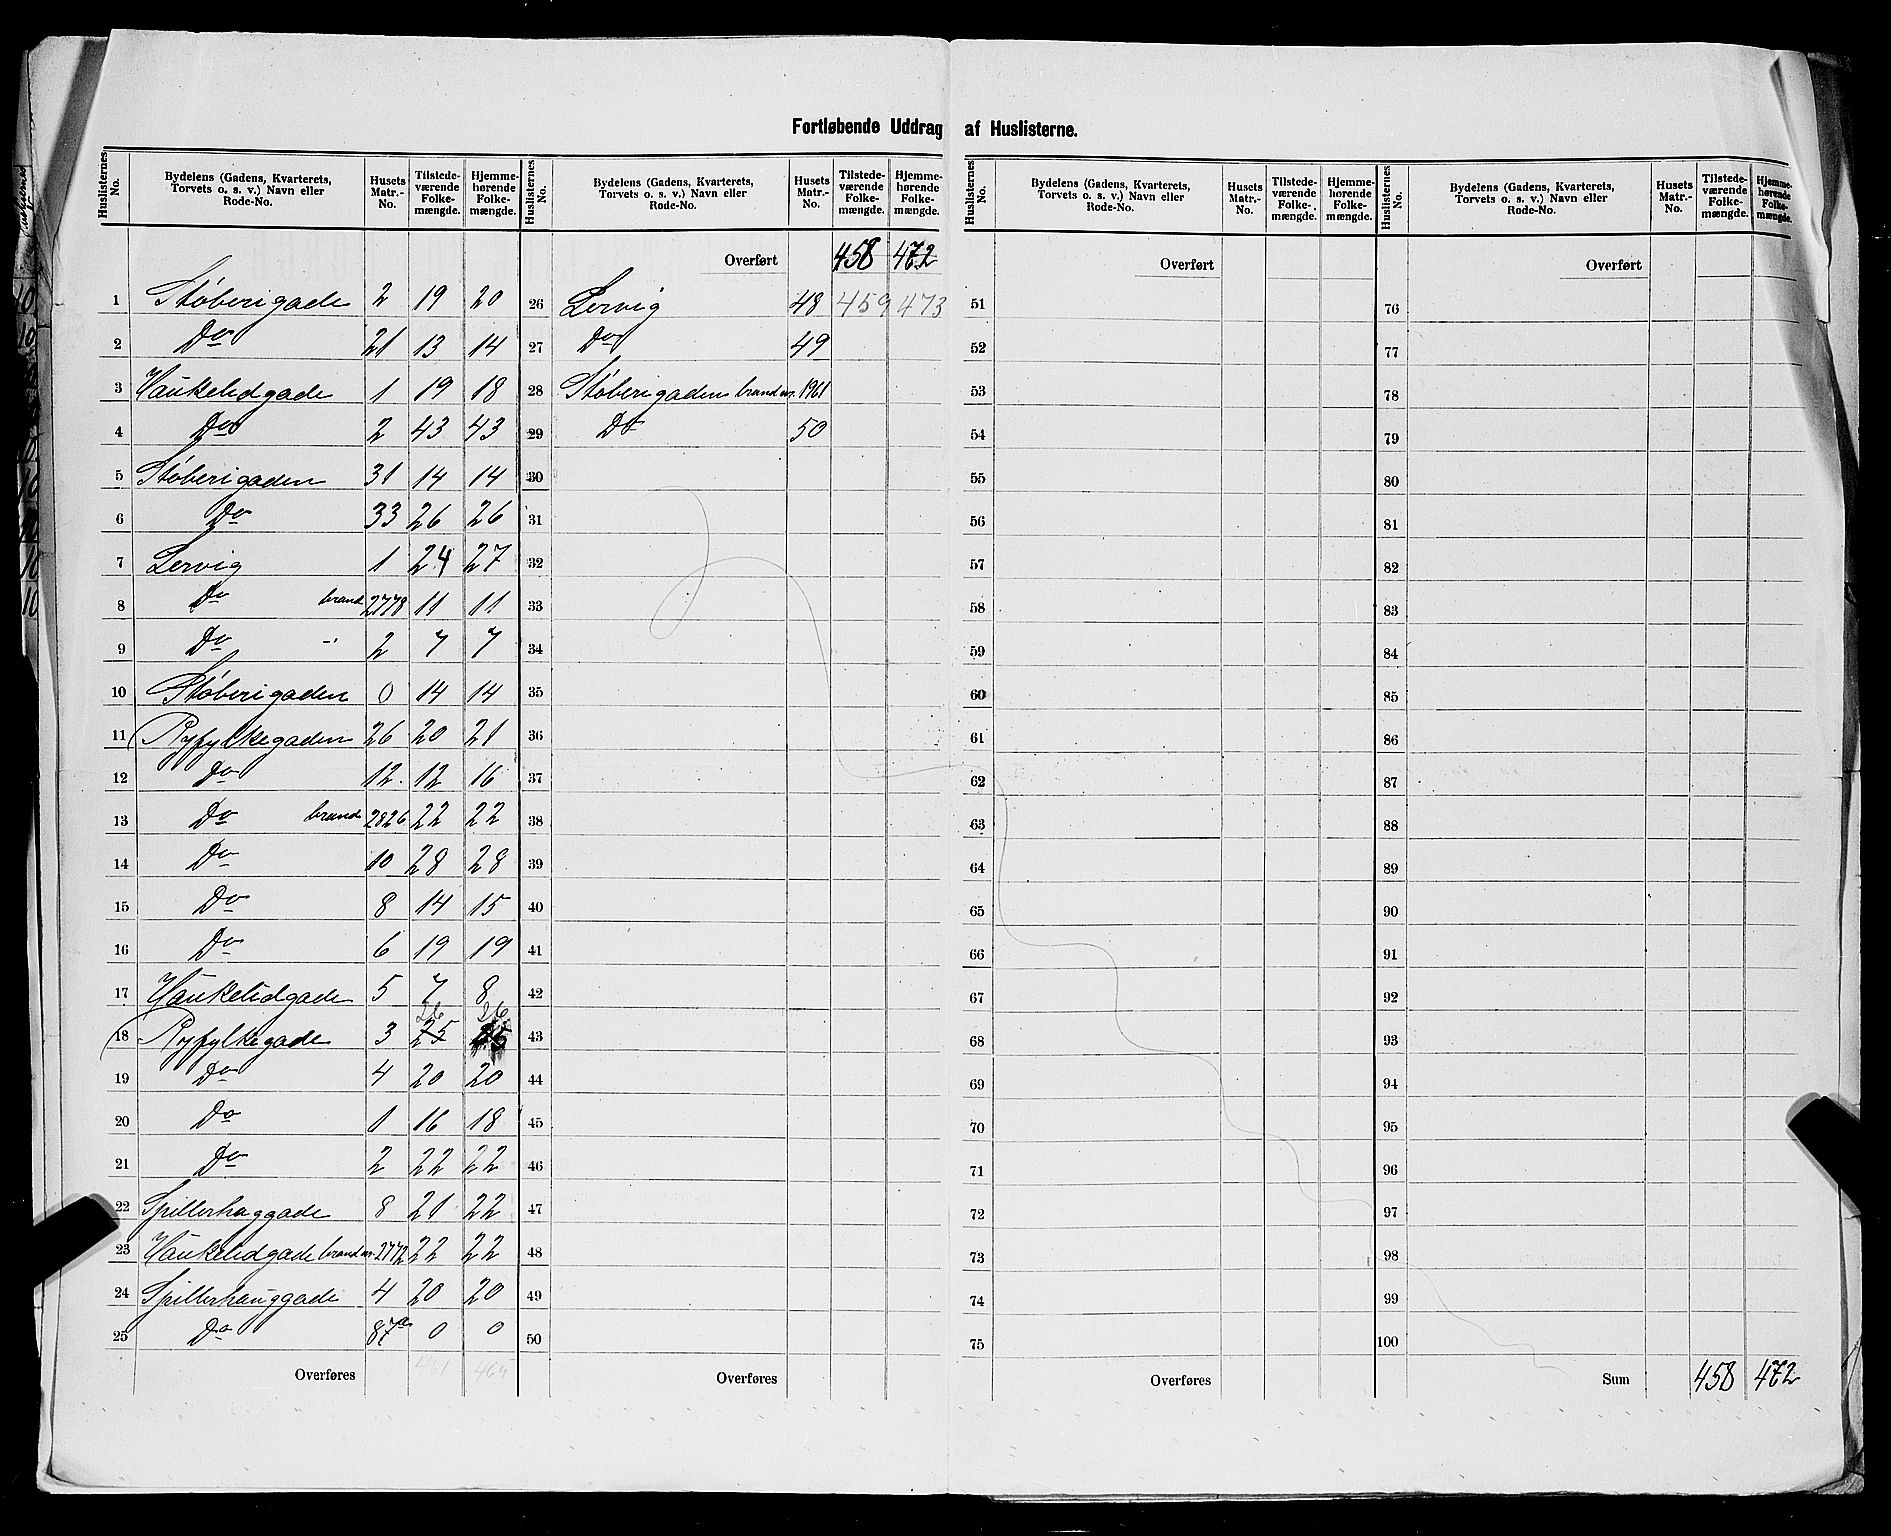 Fortløbende Uddrag af Huslisterne.
Huslisternes No. | Bydelens (Gadens, Kvarterets, Torvets o. s. v.) Navn eller Rode-No. | Husets Matr.-No. | Tilstedeværende Folkemængde. | Hjemmehørende Folkemængde.
1 Støberigade 2 19 20
2 Do 21 13 14
3 Haukelidgade 1 19 18
4 Do 2 43 43
5 Støberigaden 31 14 14
6 Do 33 26 26
7 Lervig 1 24 27
8 Do brand 2778 11 11
9 Do -"- 2 7 7
10 Støberigaden 0 14 14
11 Ryfylkegaden 26 20 21
12 Do 12. 12 16
13 Do brand 2826 22 22
14 Do 10 28 28
15 Do 8 14 15
16 Do 6 19 19
17 Haukelidgade 5 7 8
26 26
18 Ryfylkegade 3 25 25
19 Do 4 20 20
20 Do 1 16 18
21 Do 2 22 22
22 Spillerhaggade 8 21 22
23 Haukelidgade brand nr. 2772 22 22
24 Spillerhauggade 4 20 20
25 Do 87a 0 0
Overføres 461 469
Huslisternes No. | Bydelens (Gadens, Kvarterets, Torvets o. s. v.) Navn eller Rode-No. | Husets Matr.-No. | Tilstedeværende Folkemængde. | Hjemmehørende Folkemængde.
Overført 458 472
26 Lervig 48 459 473
27 Do 49
28 Støberigaden brand nr. 1961
29 Do 50
30
31
32
33
34
35
36
37
38
39
40
41
42
43
44
45
46
47
48
49
50
Overføres
Huslisternes No. | Bydelens (Gadens, Kvarterets, Torvets o. s. v.) Navn eller Rode-No. | Husets Matr.-No. | Tilstedeværende Folke-mængde. | Hjemmehørende Folkemængde.
Overført
51
52
53
54
55
56
57
58
59
60
61
62
63
64
65
66
67
68
69
70
71
72
73
74
75
Overføres
Huslisternes No. | Bydelens (Gadens, Kvarterets, Torvets o. s. v.) Navn eller Rode-No. | Husets Matr.-No. | Tilstedeværende Folkemængde. | Hjemmehørende Folkemængde.
Overført
76
77
78
79
80
81
82
83
84
85
86
87
88
89
90
91
92
93
94
95
96
97
98
99
100
Sum 458 472